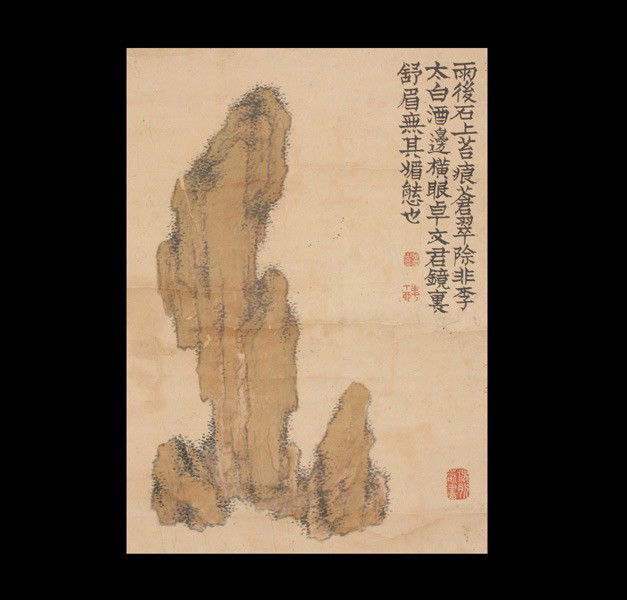 雨後石上苔痕蒼翠除非李
太白酒邊橫眼卓文君鏡裏
舒眉無其媚態也